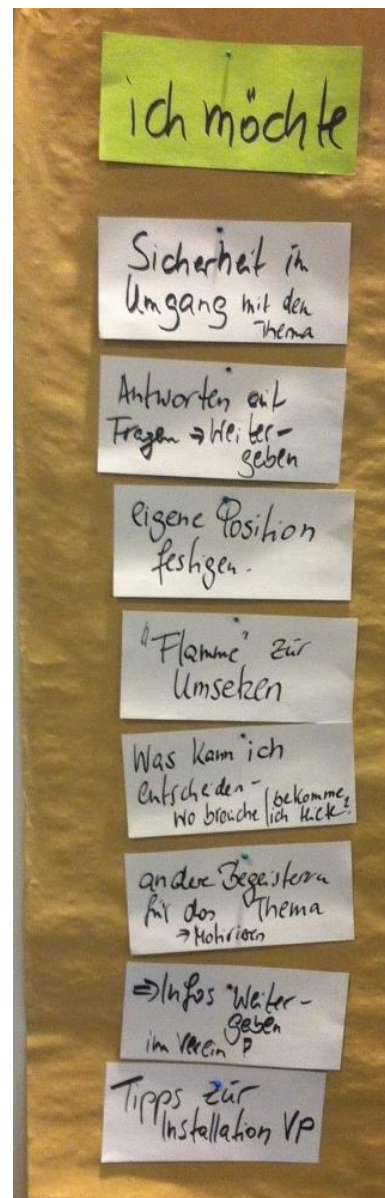 ich möchte
Sicherheit im
Umgang mit den
Thema
Antworten auf
Fragen ⇒ Weiter-
geben
eigene Position
festigen.
"Flamme" zur
Umsetzen
Was kann ich
entscheiden-
wo brauche / bekomme
ich Hilfe?
andere Begeistern
für das Thema
→ Motivieren
⇒ Infos Weiter-
geben
im Verein
Tipps zur
Installation VP